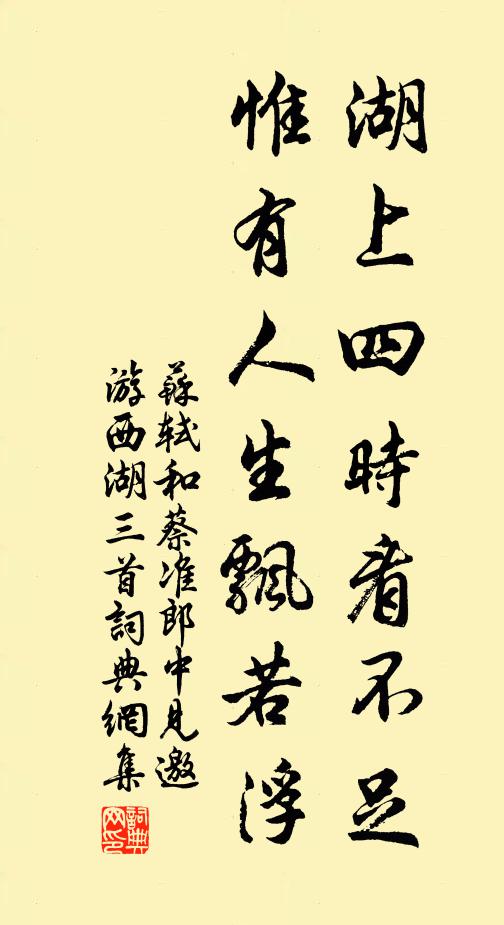 湖上四時看不足
惟有人生飄若浮
蘇軾和蔡准郎中見邀
游西湖三首詞典網集
詞典
网印